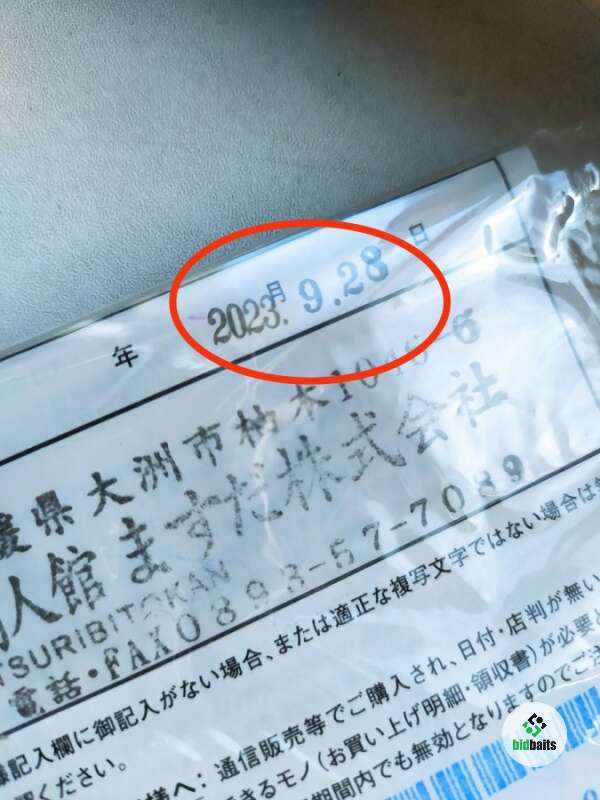 年 月 日
2023. 9.28
媛県大洲市柚木1046-6
人館ますだ株式会社
TSURIBITOKAN
電話・FAX0893-57-7089
記入欄に御記入がない場合、または適正な複写文字ではない場合は
ください。
様へ:通信販売等でご購入され、日付・店判が無い
できるモノ(お買い上げ明細・領収書)が必要と
期間内でも無効となりますのでご注
bidbaits